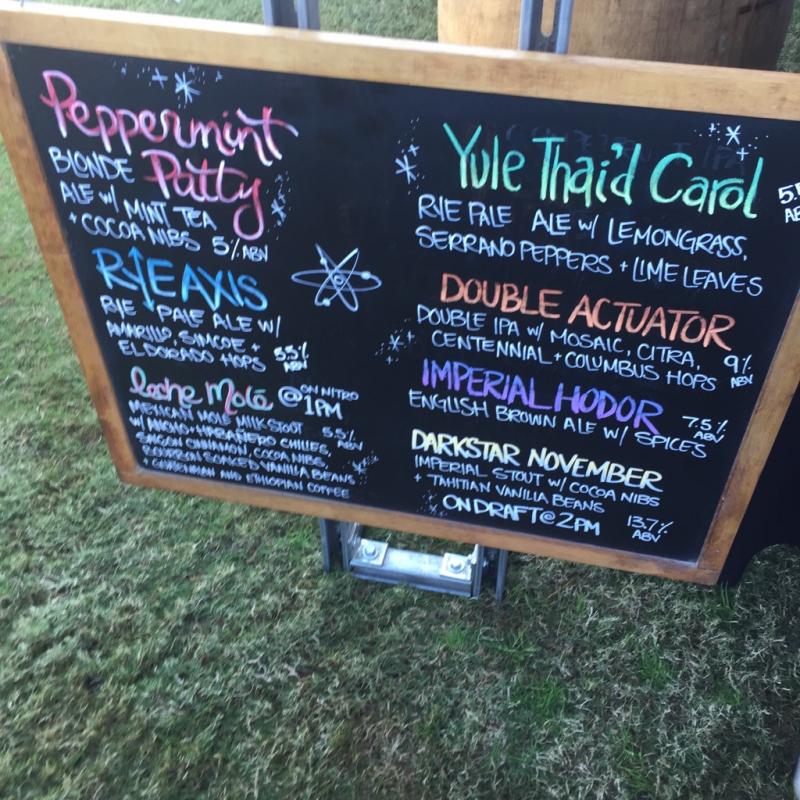 Peppermint
BLONDE Patty
ALE w/ MINT TEA
+ COCOA NIBS 5% ABV
RYE AXIS
RYE PALE ALE W/
AMARILLO, SIMCOE +
EL DORADO HOPS 5.5% ABV
Leche Molé @ ON NITRO 1PM
MEXICAN MOLE MILK STOUT
W/ ANCHO + HABAÑERO CHILIES, 5.5% ABV
SAIGON CINNAMON, COCOA NIBS,
BOURBON SOAKED VANILLA BEANS
+ GUATEMALAN AND ETHIOPIAN COFFEE
Yule Thai'd Carol
RYE PALE ALE w/ LEMONGRASS,
SERRANO PEPPERS + LIME LEAVES
DOUBLE ACTUATOR
DOUBLE IPA w/ MOSAIC, CITRA,
CENTENNIAL + COLUMBUS HOPS 9% ABV
IMPERIAL HODOR
ENGLISH BROWN ALE W/ SPICES 7.5% ABV
DARKSTAR NOVEMBER
IMPERIAL STOUT w/ COCOA NIBS
+ TAHITIAN VANILLA BEANS
ON DRAFT @ 2PM 13.7% ABV